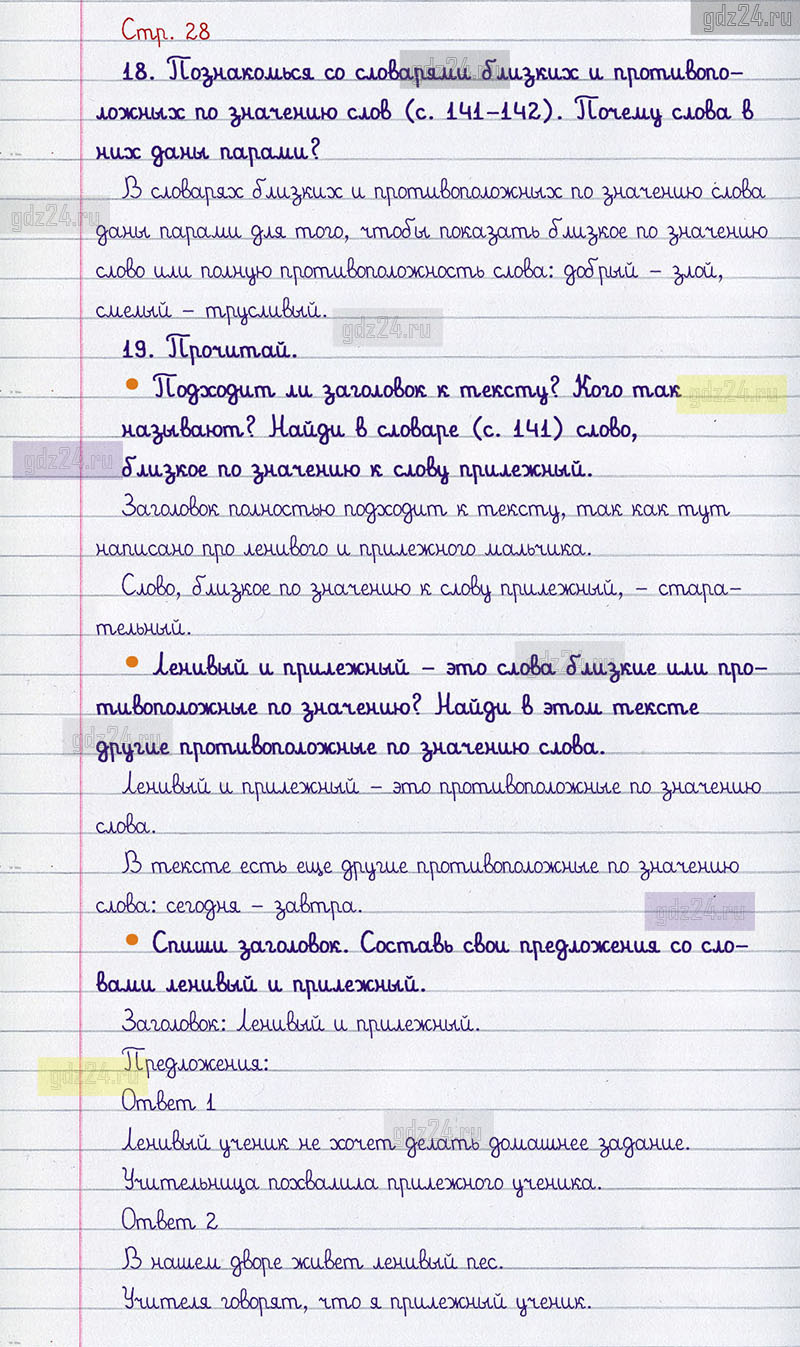 gdz24.ru
Стр. 28
18. Познакомься со словарями близких и противопо-
gdz24.ru
ложных по значению слов (с. 141-142). Почему слова в
них даны парами?
В словарях близких и противоположных по значению слова
gdz24.ru
даны парами для того, чтобы показать близкое по значению
слово или полную противоположность слова: добрый – злой,
смелый – трусливый.
gdz24.ru
19. Прочитай.
• Подходит ли заголовок к тексту? Кого так
gdz24.ru
называют? Найди в словаре (с. 141) слово,
gdz24.ru
близкое по значению к слову прилежный.
Заголовок полностью подходит к тексту, так как тут
написано про ленивого и прилежного мальчика.
Слово, близкое по значению к слову прилежный, – стара-
тельный.
• Ленивый и прилежный – это слова близкие или про-
gdz24.ru
тивоположные по значению? Найди в этом тексте
gdz24.ru
другие противоположные по значению слова.
Ленивый и прилежный – это противоположные по значению
слова.
В тексте есть еще другие противоположные по значению
слова: сегодня – завтра.
gdz24.ru
• Спиши заголовок. Составь свои предложения со сло-
вами ленивый и прилежный.
Заголовок: Ленивый и прилежный.
Предложения:
gdz24.ru
Ответ 1
gdz24.ru
Ленивый ученик не хочет делать домашнее задание.
Учительница похвалила прилежного ученика.
Ответ 2
В нашем дворе живет ленивый пес.
Учителя говорят, что я прилежный ученик.